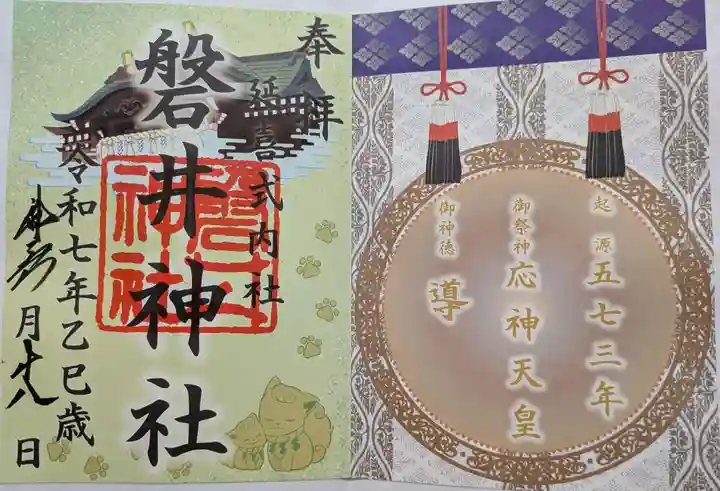 起源 五七三年
御祭神 応神天皇
御神徳 導
奉拝
延喜式内社
磐井神社
令和七年乙巳歳
月十八日